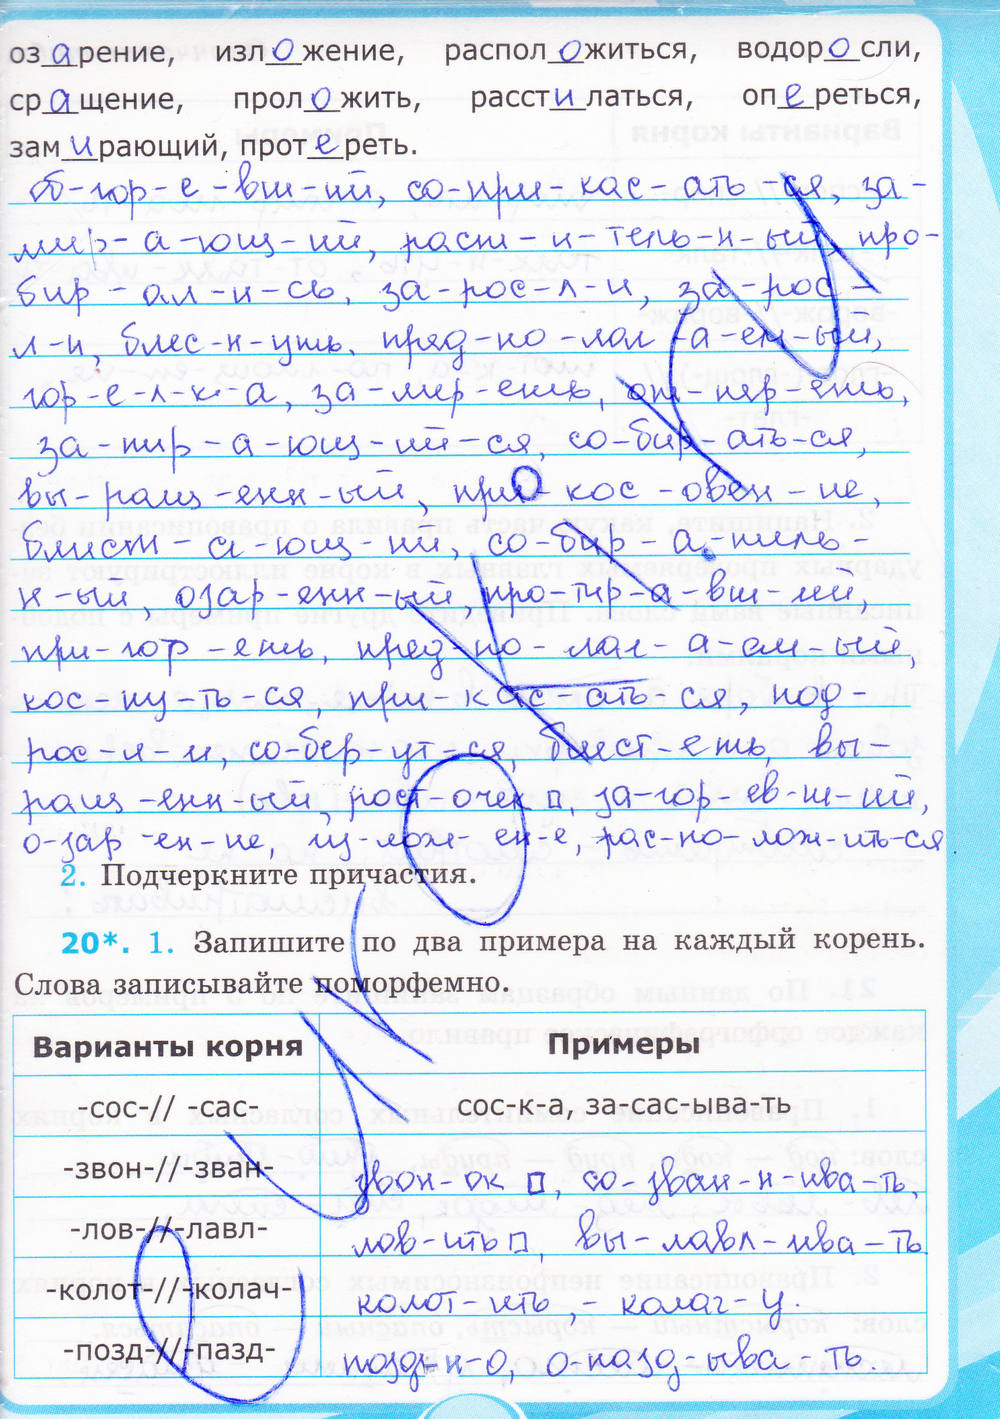 оз а рение, изл о жение, распол о житься, водор о сли,
ср а щение, прол о жить, расст и латься, оп е реться,
зам и рающий, прот е реть.
об-гор-е-вш-ий, со-при-кас-ать-ся, за-
мир-а-ющ-ий, раст-и-тель-н-ый, про-
бир-ал-и-сь, за-рос-л-и, за-рос-
л-и, блес-н-уть, пред-по-лаг-а-ем-ый,
гор-е-л-к-а, за-мер-еть, от-пер-еть,
за-пир-а-ющ-ий-ся, со-бир-ать-ся,
вы-ращ-енн-ый, при-кос-овен-ие,
блист-а-ющ-ий, со-бир-а-тель-
н-ый, озар-енн-ый, про-тир-а-вш-ий,
при-гор-еть, пред-по-лаг-а-ем-ый,
кос-ну-ть-ся, при кас ать ся, под-
рос л и, со-бер-ут-ся, блест-еть, вы-
ращ-енн-ый, рост-очек, за-гор-ев-ш-ий,
о-зар-ен-ие, из-лож-ен-е, рас-по-лож-ить-ся
2. Подчеркните причастия.
20*. 1. Запишите по два примера на каждый корень.
Слова записывайте поморфемно.
Варианты корня Примеры
-сос-// -сас- сос-к-а, за-сас-ыва-ть
-звон-//-зван- звон-ок, со-зван-н-ива-ть,
-лов-//-лавл- лов-ить, вы-лавл-ива-ть
-колот-//-колач- колот-ить, - колач-у.
-позд-//-пазд- позд-н-о, о-позд-ыва-ть